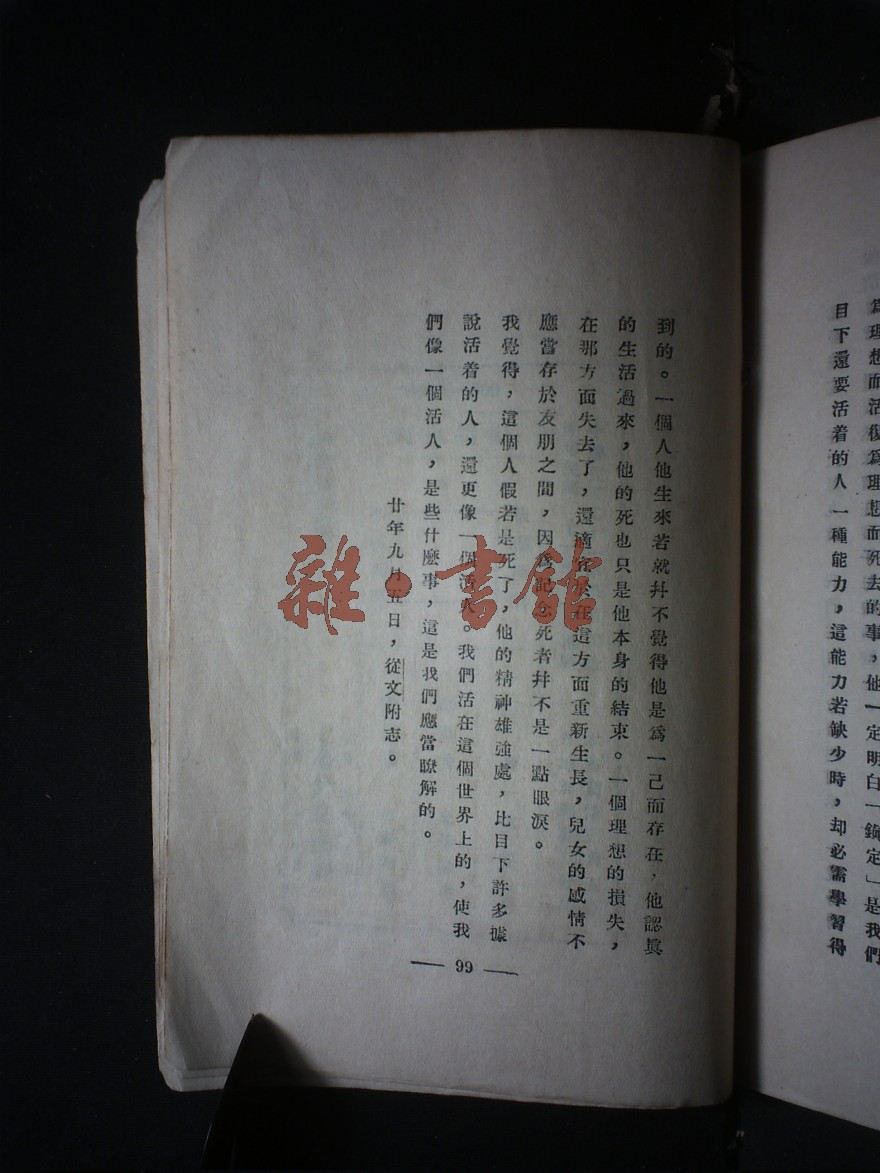 爲理想而活復爲理想而死去的事，他一定明白「鎭定」是我們
目下還要活着的人一種能力，這能力若缺少時，却必需學習得
到的。一個人他生來若就幷不覺得他是爲一己而存在，他認眞
的生活過來，他的死也只是他本身的結束。一個理想的損失，
在那方面失去了，還適宜於在這方面重新生長，兒女的感情不
應當存於友朋之間，因爲紀念死者幷不是一點眼淚。
我覺得，這個人假若是死了，他的精神雄強處，比目下許多據
說活着的人，還更像一個活人。我們活在這個世界上的，使我
們像一個活人，是些什麼事，這是我們應當瞭解的。
廿年九月五日，從文附志。
— 99 —
雜·書館